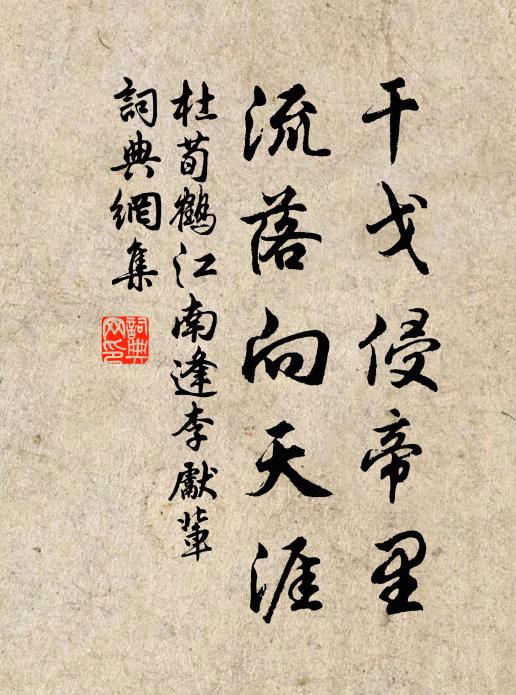 干戈侵帝里
流落向天涯
杜荀鶴江南逢李獻輩
詞典網集
詞典
网印